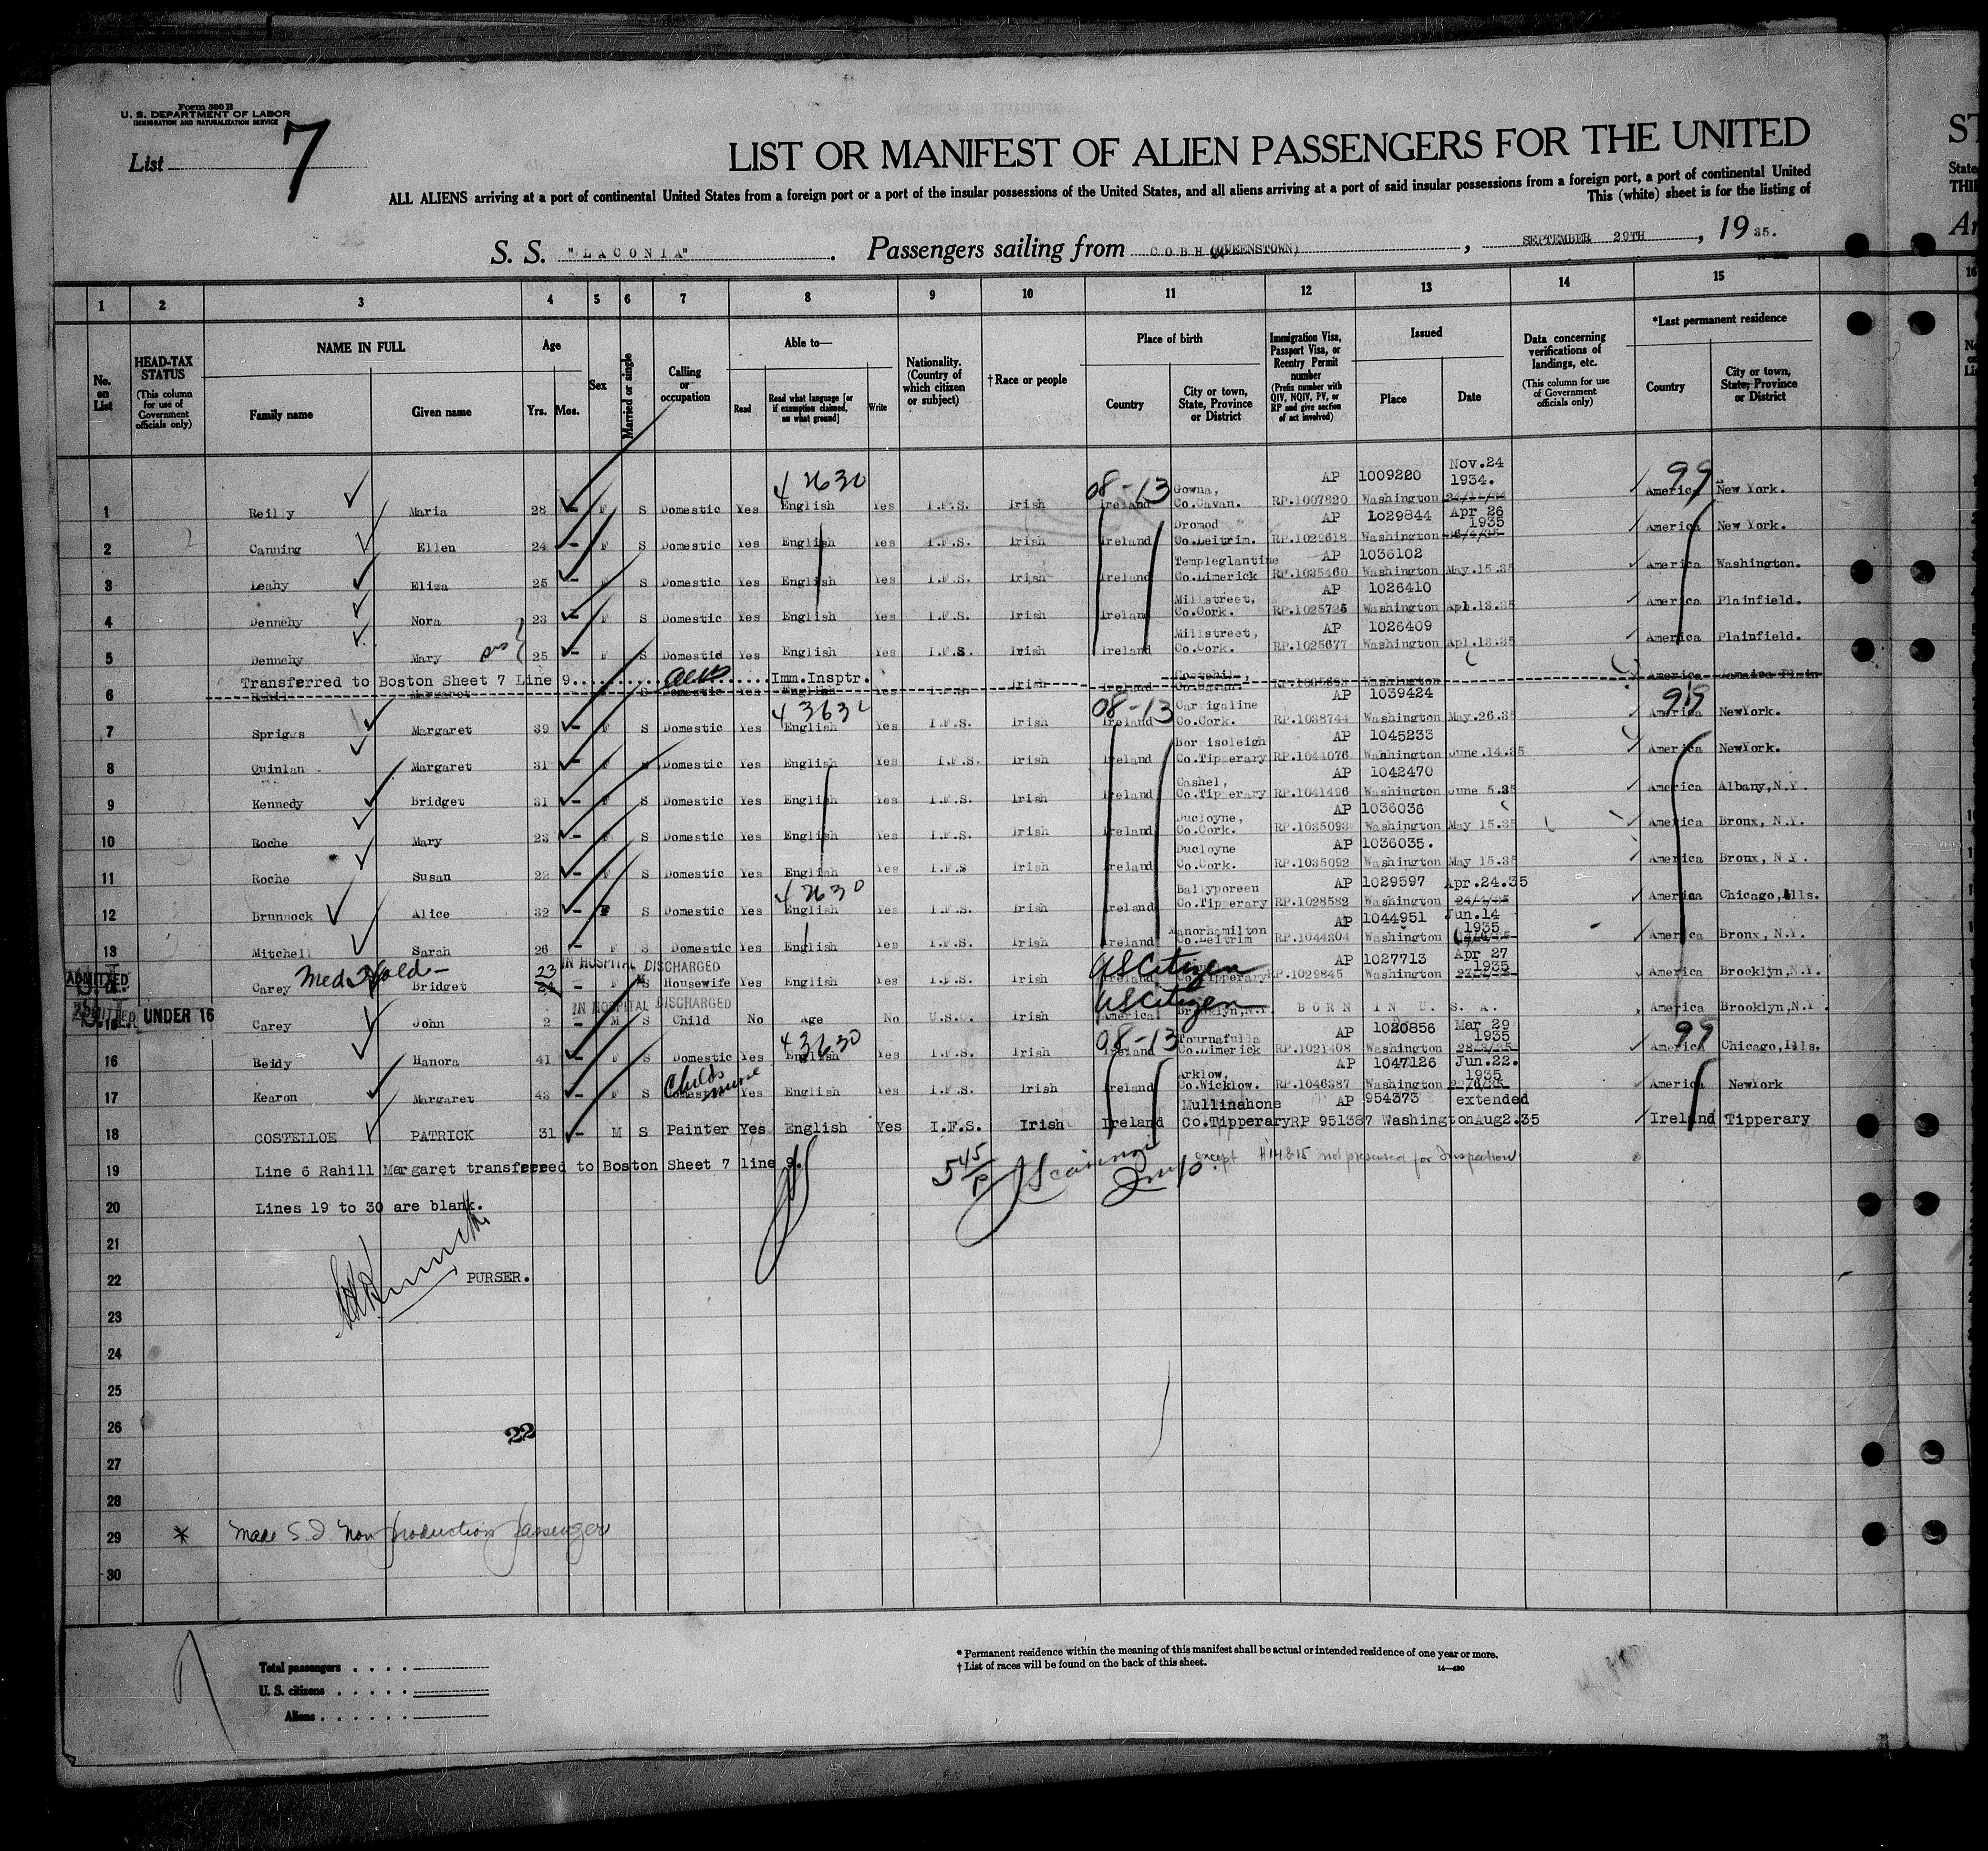 Form 500 B
U. S. DEPARTMENT OF LABOR
IMMIGRATION AND NATURALIZATION SERVICE
List 7
LIST OR MANIFEST OF ALIEN PASSENGERS FOR THE UNITED
ST
ALL ALIENS arriving at a port of continental United States from a foreign port or a port of the insular possessions of the United States, and all aliens arriving at a port of said insular possessions from a foreign port, a port of continental United
State
This (white) sheet is for the listing of
S. S. "LACONIA". Passengers sailing from COBH (QUEENSTOWN), SEPTEMBER 29TH, 1935.
1 2 3 4 5 6 7 8 9 10 11 12 13 14 15 16
No. on List
HEAD-TAX STATUS (This column for use of Government officials only)
NAME IN FULL Family name Given name
Age Yrs. Mos.
Sex
Married or single
Calling or occupation
Able to— Read Read what language [or if exemption claimed, on what ground] Write
Nationality. (Country of which citizen or subject)
† Race or people
Place of birth Country City or town, State, Province or District
Immigration Visa, Passport Visa, or Reentry Permit number (Prefix number with QIV, NQIV, PV, or RP and give section of act involved)
Issued Place Date
Data concerning verifications of landings, etc. (This column for use of Government officials only)
*Last permanent residence Country City or town, State, Province or District
08-13 99
1 Reilly Maria 28 - F S Domestic Yes English Yes I.F.S. Irish Ireland Gowna, Co.Cavan. AP 1009220 RP.1007820 Washington Nov.24 1934. America New York.
2 Canning Ellen 24 - F S Domestic Yes English Yes I.F.S. Irish Ireland Dromod Co.Leitrim. AP 1029844 RP.1029618 Washington Apr 26 1935 America New York.
3 Leahy Eliza 25 - F S Domestic Yes English Yes I.F.S. Irish Ireland Templeglantine Co.Limerick AP 1036102 RP.1035460 Washington May.15.35 America Washington.
4 Dennehy Nora 23 - F S Domestic Yes English Yes I.F.S. Irish Ireland Millstreet, Co.Cork. AP 1026410 RP.1025725 Washington Apl.13.35 America Plainfield.
5 Dennehy Mary 25 - F S Domestic Yes English Yes I.F.S. Irish Ireland Millstreet, Co.Cork. AP 1026409 RP.1025677 Washington Apl.13.35 America Plainfield.
Transferred to Boston Sheet 7 Line 9. Imm.Insptr.
6 Rahill Margaret S Domestic Yes English Yes Irish Ireland Washington America Jamaica Plain
08-13 99
7 Spriggs Margaret 39 - F S Domestic Yes English Yes I.F.S. Irish Ireland Carrigaline Co.Cork. AP 1039424 RP.1038744 Washington May.26.35 America NewYork.
8 Quinlan Margaret 31 - F Domestic Yes English Yes I.F.S. Irish Ireland Borrisoleigh Co.Tipperary AP 1045233 RP.1044076 Washington June.14.35 America NewYork.
9 Kennedy Bridget 31 - F S Domestic Yes English Yes I.F.S. Irish Ireland Cashel, Co.Tipperary AP 1042470 RP.1041496 Washington June 5.35 America Albany,N.Y.
10 Roche Mary 23 - F S Domestic Yes English Yes I.F.S. Irish Ireland Ducloyne, Co.Cork. AP 1036036 RP.1035093 Washington May 15.35 America Bronx, N.Y.
11 Roche Susan 22 - F S Domestic Yes English Yes I.F.S Irish Ireland Ducloyne Co.Cork. AP 1036035. RP.1035092 Washington May 15.35 America Bronx, N Y.
12 Brunnock Alice 32 - F S Domestic Yes English Yes I.F.S. Irish Ireland Ballyporeen Co.Tipperary AP 1029597 RP.1028582 Washington Apr.24.35 24/4/35 America Chicago,Ills.
13 Mitchell Sarah 26 - F S Domestic Yes English Yes I.F.S. Irish Ireland Manorhamilton Co.Leitrim AP 1044951 RP.1044204 Washington Jun.14 1935 America Bronx, N.Y.
IN HOSPITAL DISCHARGED
ADMITTED Carey Med Hold- Bridget 23 24 - F S Housewife Yes English Yes I.F.S. Irish Ireland US Citizen Co.Tipperary AP 1027713 RP.1029845 Washington Apr 27 1935 America Brooklyn,N.Y.
IN HOSPITAL DISCHARGED
ADMITTED UNDER 16 Carey John 2 - M S Child No Age No U.S.C. Irish America US Citizen Brooklyn,N.Y. BORN IN U. S. A. America Brooklyn,N.Y
08-13 99
16 Reidy Hanora 41 - F S Domestic Yes English Yes I.F.S. Irish Ireland Tournafulla Co.Limerick AP 1020856 RP.1021408 Washington Mar 29 1935 28/3/35 America Chicago,Ills.
17 Kearon Margaret 43 - F S Domestic Childs nurse Yes English Yes I.F.S. Irish Ireland Arklow, Co.Wicklow. AP 1047126 RP.1046387 Washington Jun.22. 1935 22/6/35 America NewYork
18 COSTELLOE PATRICK 31 - M S Painter Yes English Yes I.F.S. Irish Ireland Mullinahone Co.Tipperary AP 954373 RP 951387 Washington extended Aug2.35 Ireland Tipperary
19 Line 6 Rahill Margaret transferred to Boston Sheet 7 line 9. except #14&15 not presented for Inspection
20 Lines 19 to 30 are blank.
21
22 PURSER.
23
24
25
26
22
27
28
29 * Made S.I Non production passenger
30
Total passengers
U. S. citizens
Aliens
* Permanent residence within the meaning of this manifest shall be actual or intended residence of one year or more.
† List of races will be found on the back of this sheet.
14—430